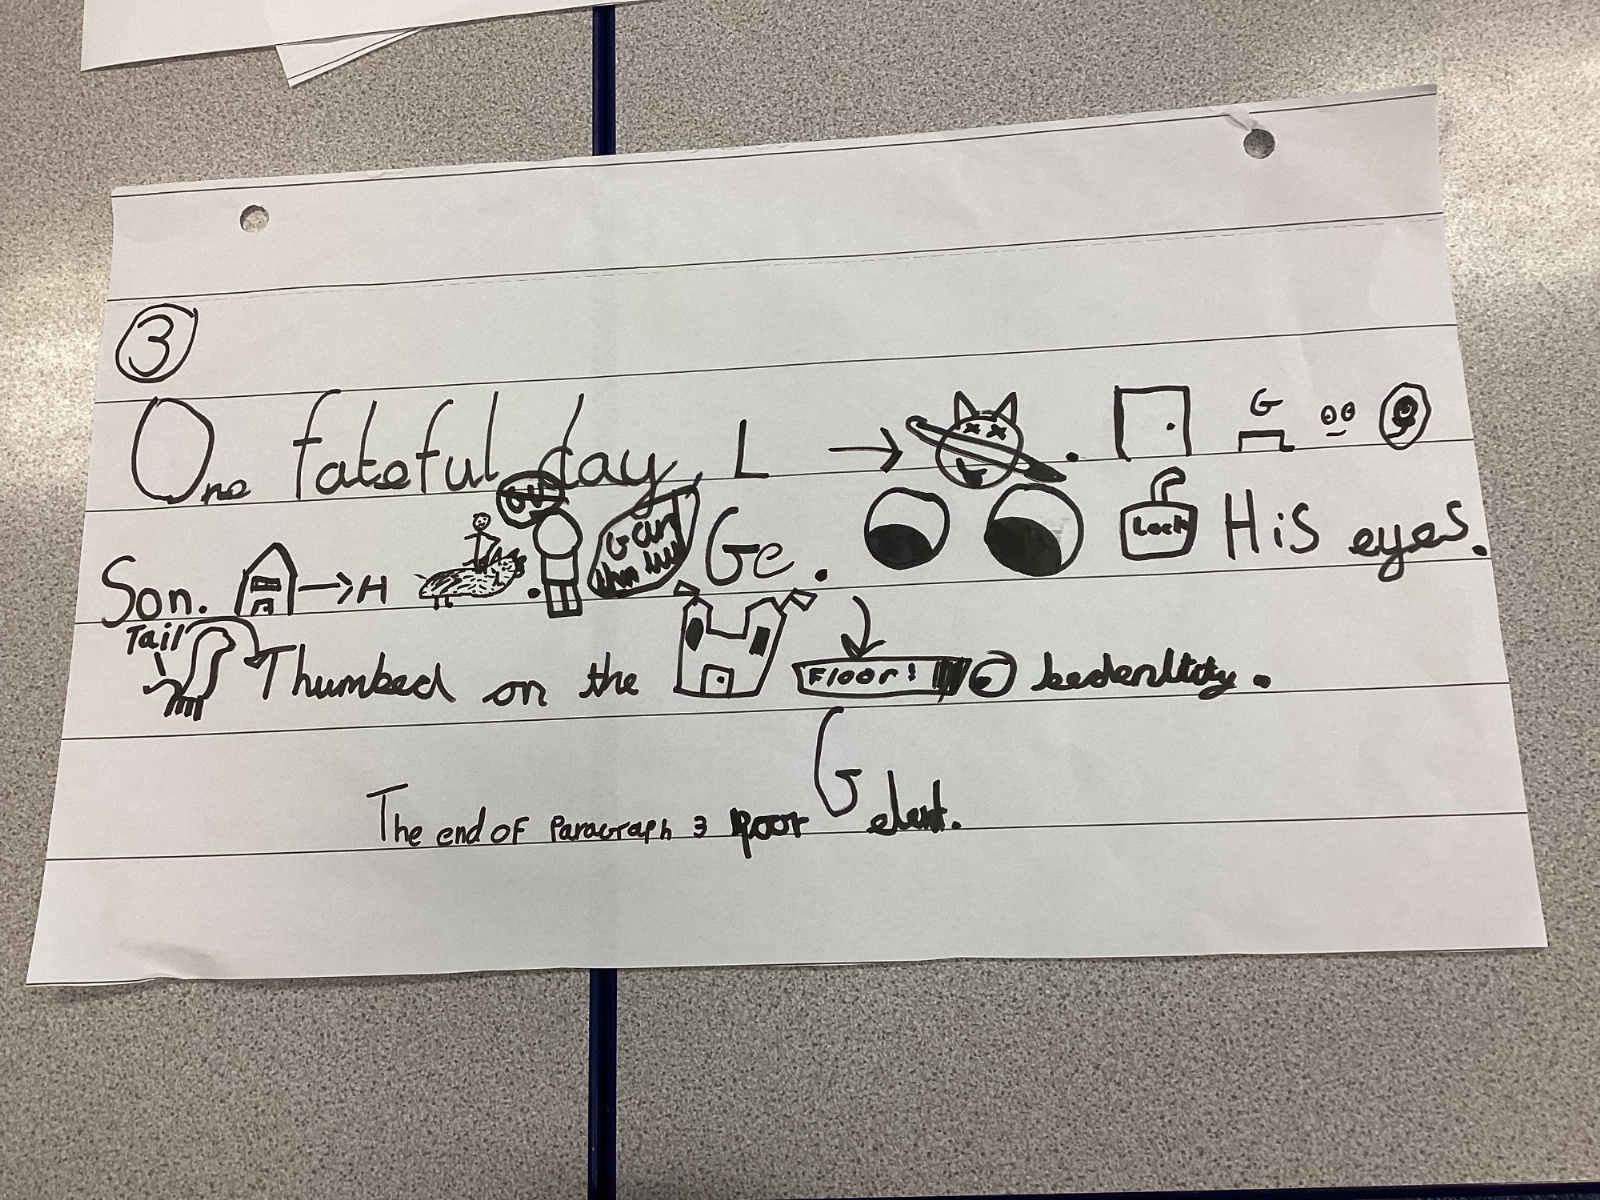 3
One fateful day, L G
Son. H Ge. Lock His eyes.
Tail Thumbed on the Floor!
The end of Paragraph 3 poor Gelert.